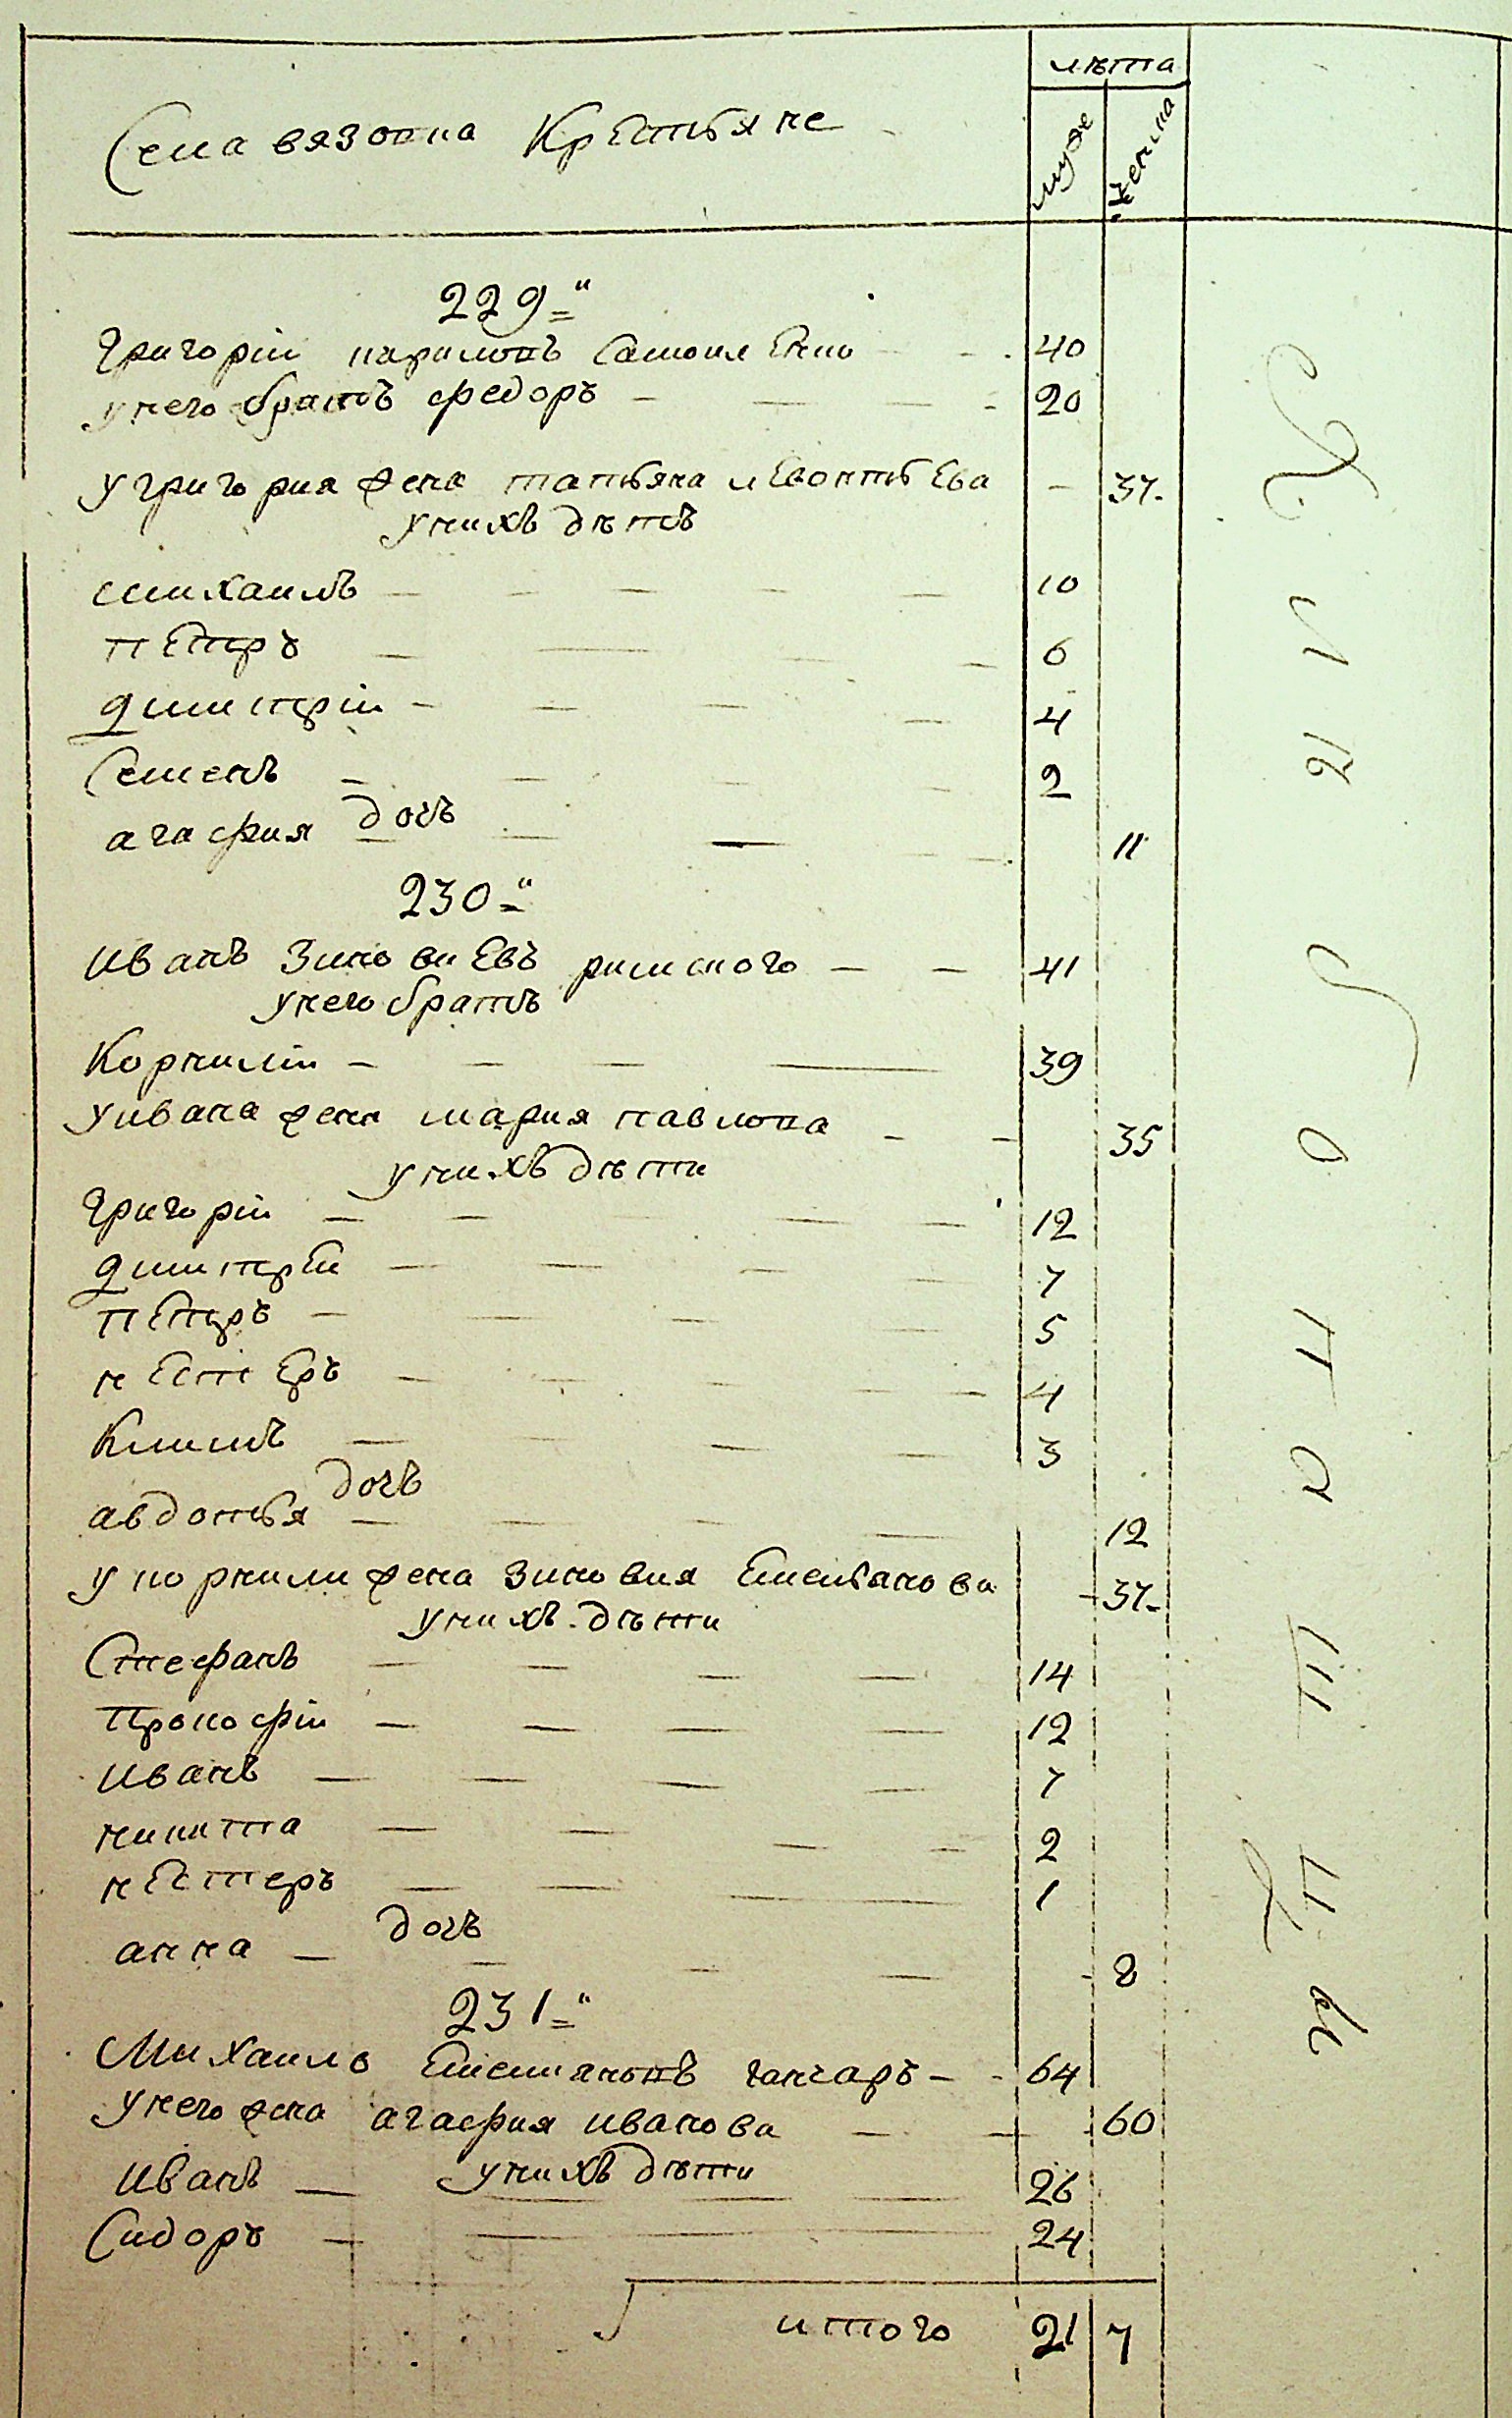 лѣта
Села вязовка Крестьяне
муж
женска
229-"
Григорій кириловъ Самоиленко 40
у него братъ федоръ 20
У григория жена татьяна левонтьева 37
у нихъ дѣтѣ
михаилъ 10
петръ 6
димитрій 4
Семенъ 2
агафия дочь 11
230-"
Иванъ Зиновиевъ римского 41
у него братъ
Корнилій 39
У ивана жена мария павлова 35
у нихъ дѣти
Григорій 12
димитрей 7
петръ 5
нестеръ 4
Климъ 3
авдотья дочь 12
у корнили жена зиновия Емельянова 37
у нихъ дѣти
Стефанъ 14
Прокофій 12
Иванъ 7
никита 2
нестеръ 1
анна дочь 8
231-"
Михаилъ Емельяновъ гончаръ 64
У него жена агафия иванова 60
у нихъ дѣти
Иванъ 26
Сидоръ 24
итого 21 7